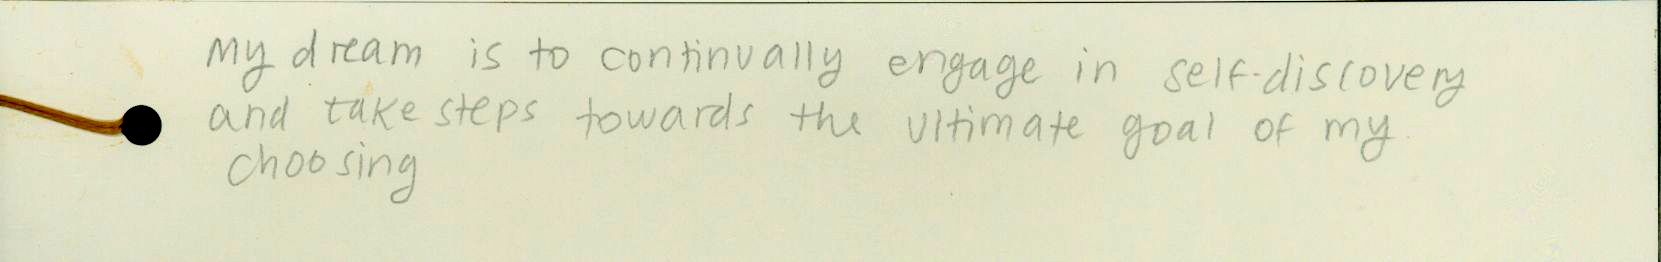 My dream is to continually engage in self-discovery
and take steps towards the ultimate goal of my
choosing